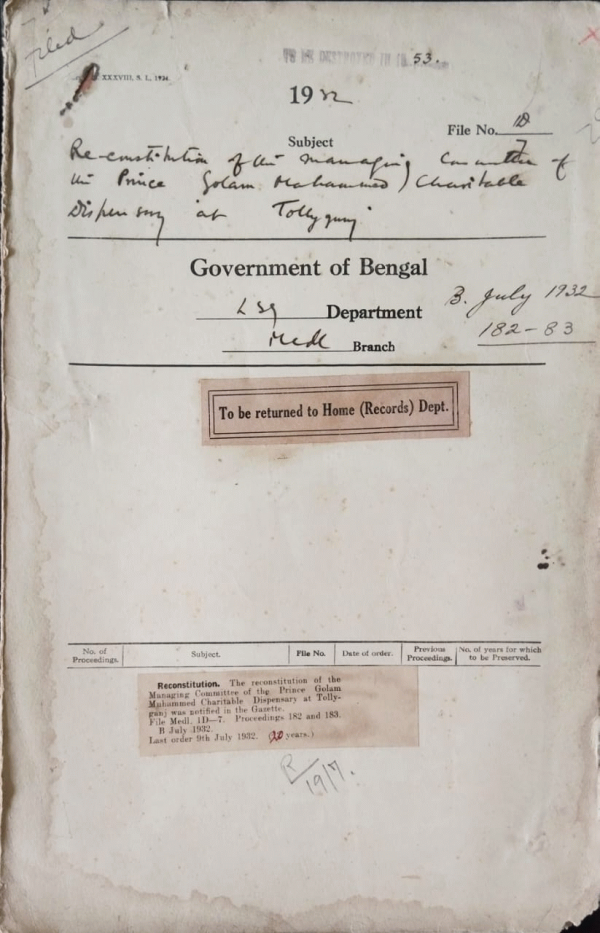 Filed
TO BE DESTROYED IN 19 53.
XXXVIII, S. L., 1934
1932
File No. 1D
7
Subject
Re-constitution of the Managing Committee of
the Prince Golam Mohammed Charitable
Dispensary at Tollygunj
Government of Bengal
LSG Department
B. July 1932
182-83
Medl Branch
To be returned to Home (Records) Dept.
No. of Proceedings. Subject. File No. Date of order. Previous Proceedings. No. of years for which to be Preserved.
Reconstitution. The reconstitution of the
Managing Committee of the Prince Golam
Muhammed Charitable Dispensary at Tolly-
gunj was notified in the Gazette.
File Medl. 1D—7. Proceedings 182 and 183.
B July 1932.
Last order 9th July 1932. (20 years.)
R/19/7.